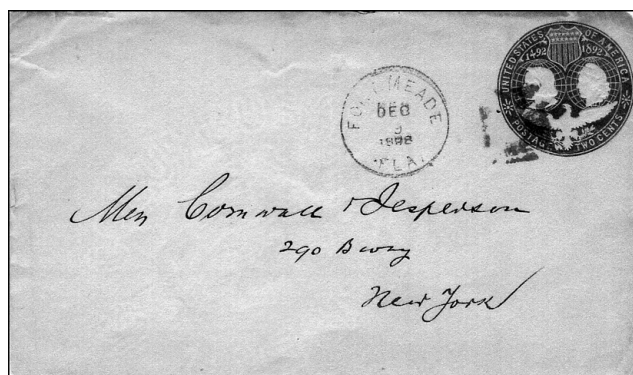 UNITED STATES OF AMERICA
1492 1892
POSTAGE TWO CENTS
FORT MEADE
DEC
9
FLA.
Cornwall & Jesperson
290 Bway
New York